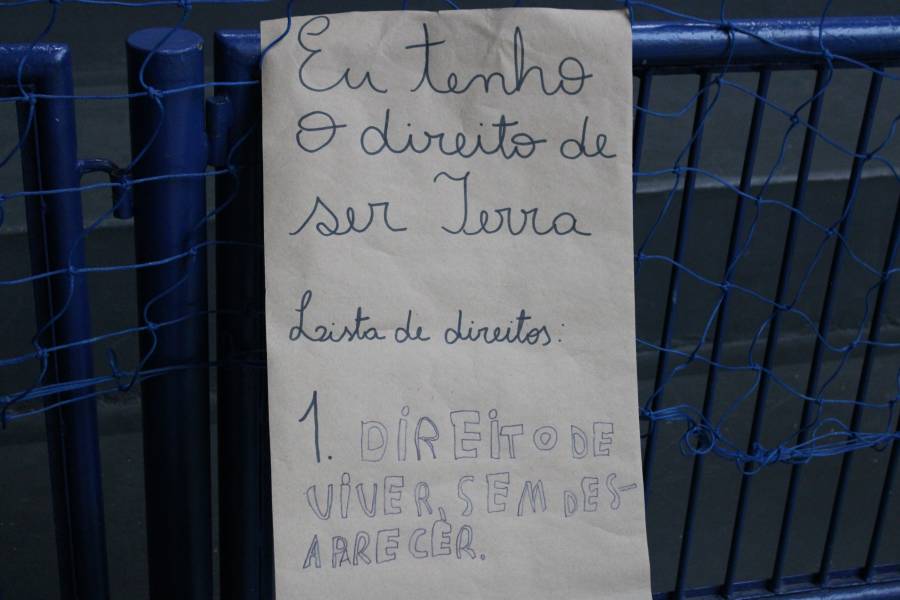 Eu tenho
o direito de
ser Terra
Lista de direitos:
1. DIREITO DE
VIVER, SEM DES-
APARECÊR.